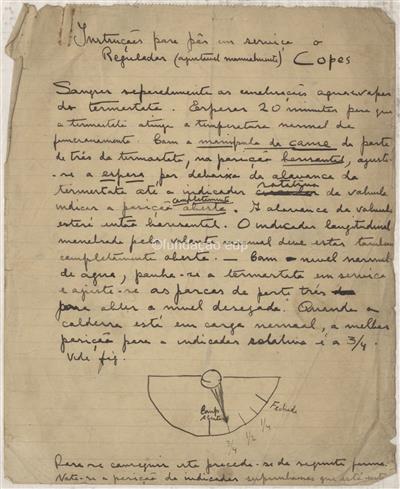 Instrução para pôr em serviço o
Regulador (ajustável manualmente) Copes
Sangrar separadamente as conduções agua-vapor
do termostato. Esperar 20 minutos para que
o termostato atinja a temperatura normal de
funcionamento. Com a manipula de came de parte
de trás do termostato, na posição horizontal, ajusta-
-se a espera por debaixo da alavanca do
termostato até o indicador rotativo da valvula
indicar a posição completamente aberta. A alavanca da valvula
estará então horizontal. O indicador longitudinal
manobrado pelo volante manual deve estar tambem
completamente aberto. — Com o nivel normal
de agua, ponha-se o termostato em serviço
e ajuste-se as porcas de parte trás
para obter o nivel desejado. Quando a
caldeira está em carga normal, a melhor
posição para o indicador rotativo é a 3/4.
Vide fig.
©fundação edp
Completamente
Fechado
3/4 1/2 1/4
Para se conseguir isto procede-se da seguinte forma.
Note-se a posição do indicador suponhamos que está